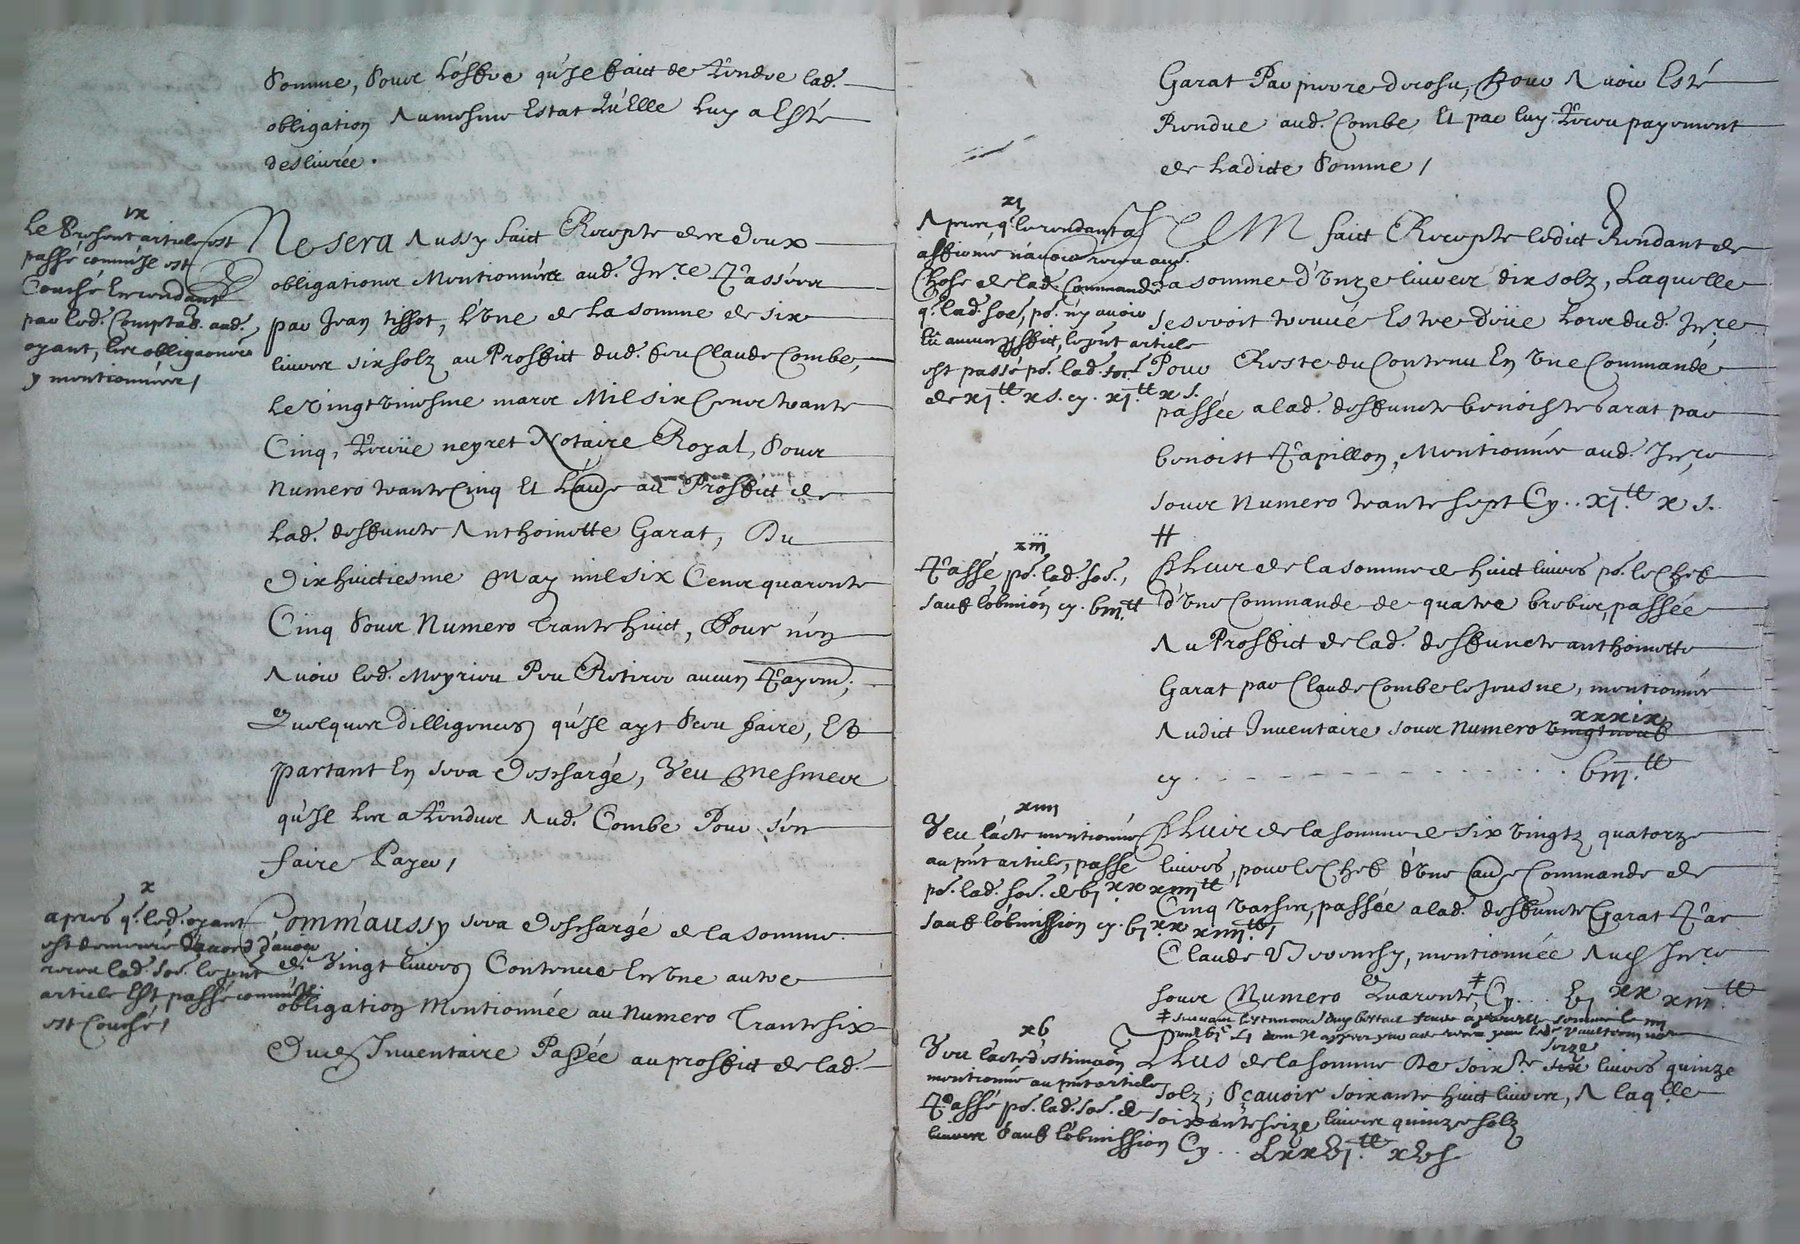 somme, soubz L'offre qu'Il faict de Rendre lad.
obligation Au mesme Estat Qu'Elle Luy a Esté
deslivrée.
ix
Le Present article est
passé comm'Il est
Couché En rendant
par led. Comptab. aud.
oyant, les obligaons
y mentionnées /
Ne sera Aussy faict Recepte des deux
obligations Mentionnées aud. Inre Passées
par Jean tissot, L'Une de La somme de six
livres six solz au Proffict dud. feu Claude Combe,
Le Vingt Uniesme mars Mil six Cens trante
Cinq, Receüe neyret Notaire Royal, soubz
Numero trante Cinq Et L'autre au Proffict de
Lad. deffuncte Anthoinette Garat, Du
Dix huictiesme May mil six Cens quarante
Cinq soubz Numero Trante huict, Pour n'en
Avoir led. Meyrieu Peu Retirer aucun Payem.,
Quelques dilligences qu'Il ayt sceu faire, Et
partant En sera Deschargé, Veu Mesmes
qu'Il Les a Rendues Aud. Combe Pour s'en
faire Payer /
x
apres q. led. oyant
est demeuré d'acord d'avoir
receu lad. so.e le p̃nt
article Est passé comm'Il
est Couché /
Comm'aussy sera Deschargé de La somme
de Vingt livres Contenue En Une autre
obligation Mentionnée au Numero Trante six
Dud. Inventaire Passée au proffict de lad.
Garat Par pierre derosu, Pour Avoir Esté
Rendue aud. Combe Et par luy Receu payement
de Ladicte somme /
xj
Apres q. le rendant a
affirmé n'avoir receu autre
Chose de lad. Commande
q. lad. so.e, po. n'y avoir
eu aucun proffict, le p̃nt article
est passé po. lad. so.e
de xj.tt x s. cy. xj.tt x s.
ITEM faict Recepte ledict Rendant de
La somme d'Unze livres dix solz, Laquelle
se seroit trouvée Estre Deüe Lors dud. Inre
Pour Reste du Contenu En Une Commande
passée a lad. deffuncte benoiste Garat par
benoist Papillon, Mentionnée aud. Inre
soubz Numero trante sept Cy.. xj.tt x s.
#
xiij
Passé po. lad. so.e,
sauf l'obmion cy. viij.tt
Plus de la somme de huict livres po. le Chef
d'Une Commande de quatre brebis, passée
Au Proffict de lad. deffuncte anthoinette
Garat par Claude Combe le Jeusne, mentionnée
Audict Inventaire soubz Numero vingt neuf xxxix
cy . . . . . . . . viij.tt
xiiij
Veu l'acte mentionné
au p̃nt article, passé
po. lad. so.e de vj xx xiiij tt
sauf l'obmission cy. vj xx xiiij.tt
Plus de la somme de six Vingtz quatorze
livres, pour le Chef d'Une autre Commande de
Cinq Vaches, passée a lad. deffuncte Garat Par
Claude, mentionnée Aud. Inre
soubz Numero Quarante Cy... vj xx xiiij.tt
xv
Veu l'acte d'estimaõn
mentionné au p̃nt article
Passé po. lad. so.e de soixante seize livres quinze solz
livres sauf l'obmission Cy.. Lxxvj.tt xv s
Plus de la somme De soix.te seize livres quinze
solz, sçavoir soixante huict livres, A laq.lle